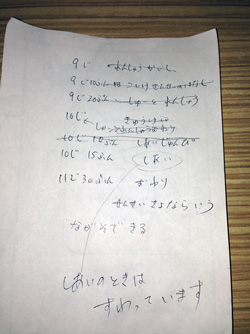 9じ れんしゅうかいし
9じ10ぷん
9じ20ぷん しゅーと れんしゅう
10じ
10じ 10ぷん しあいじゅんび
10じ 15ふん しあい
11じ30ぷん おわり
せんせいさよならいう
ながそできる
しあいのときは
すわっています